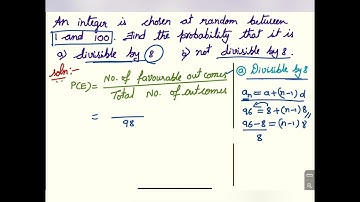 An integer is chosen at random between
1 and 100. Find the probability that it is
a) divisible by 8 b) not divisible by 8.
soln:-
P(E) = No. of favourable outcomes
Total No. of outcomes
=
98
a) Divisible by 8
an = a + (n-1) d
96 = 8 + (n-1) 8
96-8 = (n-1) 8
8